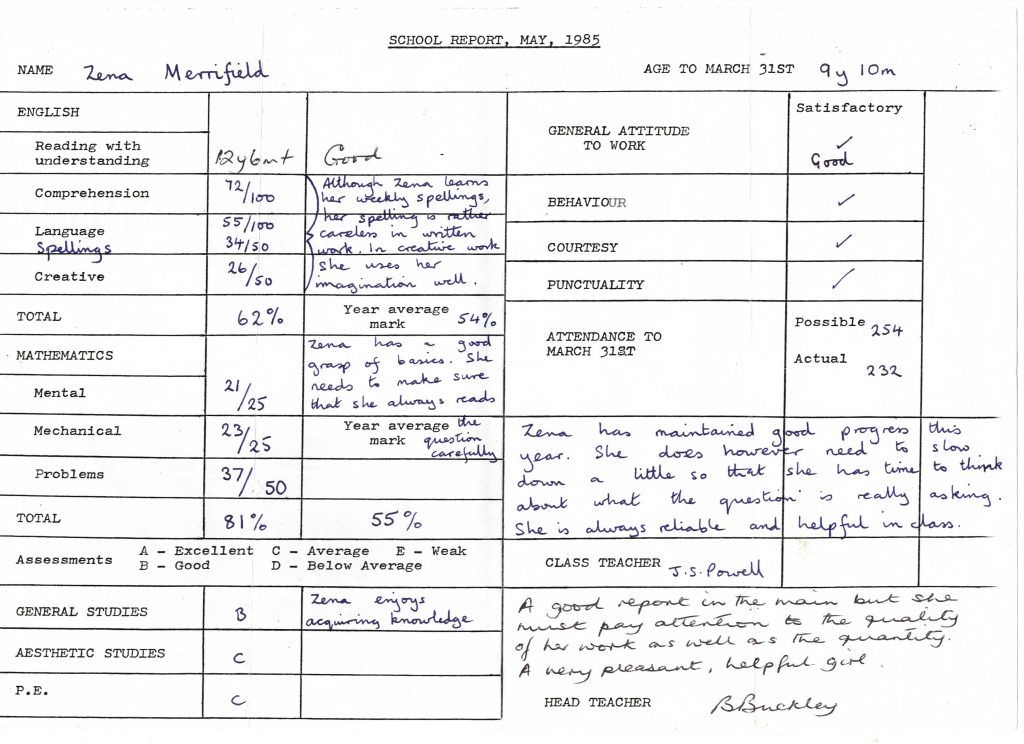 SCHOOL REPORT, MAY, 1985
NAME Zena Merrifield
AGE TO MARCH 31ST 9y 10m
ENGLISH
Reading with
understanding 12y6mt Good
Comprehension 72/100
Language 55/100
Spellings 34/50
Creative 26/50
Although Zena learns
her weekly spellings,
her spelling is rather
careless in written
work. In creative work
she uses her
imagination well.
TOTAL 62% Year average
mark 54%
MATHEMATICS
Mental 21/25
Mechanical 23/25
Problems 37/50
Zena has a good
grasp of basics. She
needs to make sure
that she always reads
the
question
carefully
Year average
mark
TOTAL 81% 55%
Assessments A - Excellent C - Average E - Weak
B - Good D - Below Average
GENERAL STUDIES B Zena enjoys
acquiring knowledge
AESTHETIC STUDIES C
P.E. C
Satisfactory
GENERAL ATTITUDE
TO WORK ✓
Good
BEHAVIOUR ✓
COURTESY ✓
PUNCTUALITY ✓
ATTENDANCE TO
MARCH 31ST
Possible 254
Actual
232
Zena has maintained good progress this
year. She does however need to slow
down a little so that she has time to think
about what the question is really asking.
She is always reliable and helpful in class.
CLASS TEACHER J.S. Powell
A good report in the main but she
must pay attention to the quality
of her work as well as the quantity.
A very pleasant, helpful girl.
HEAD TEACHER B Buckley